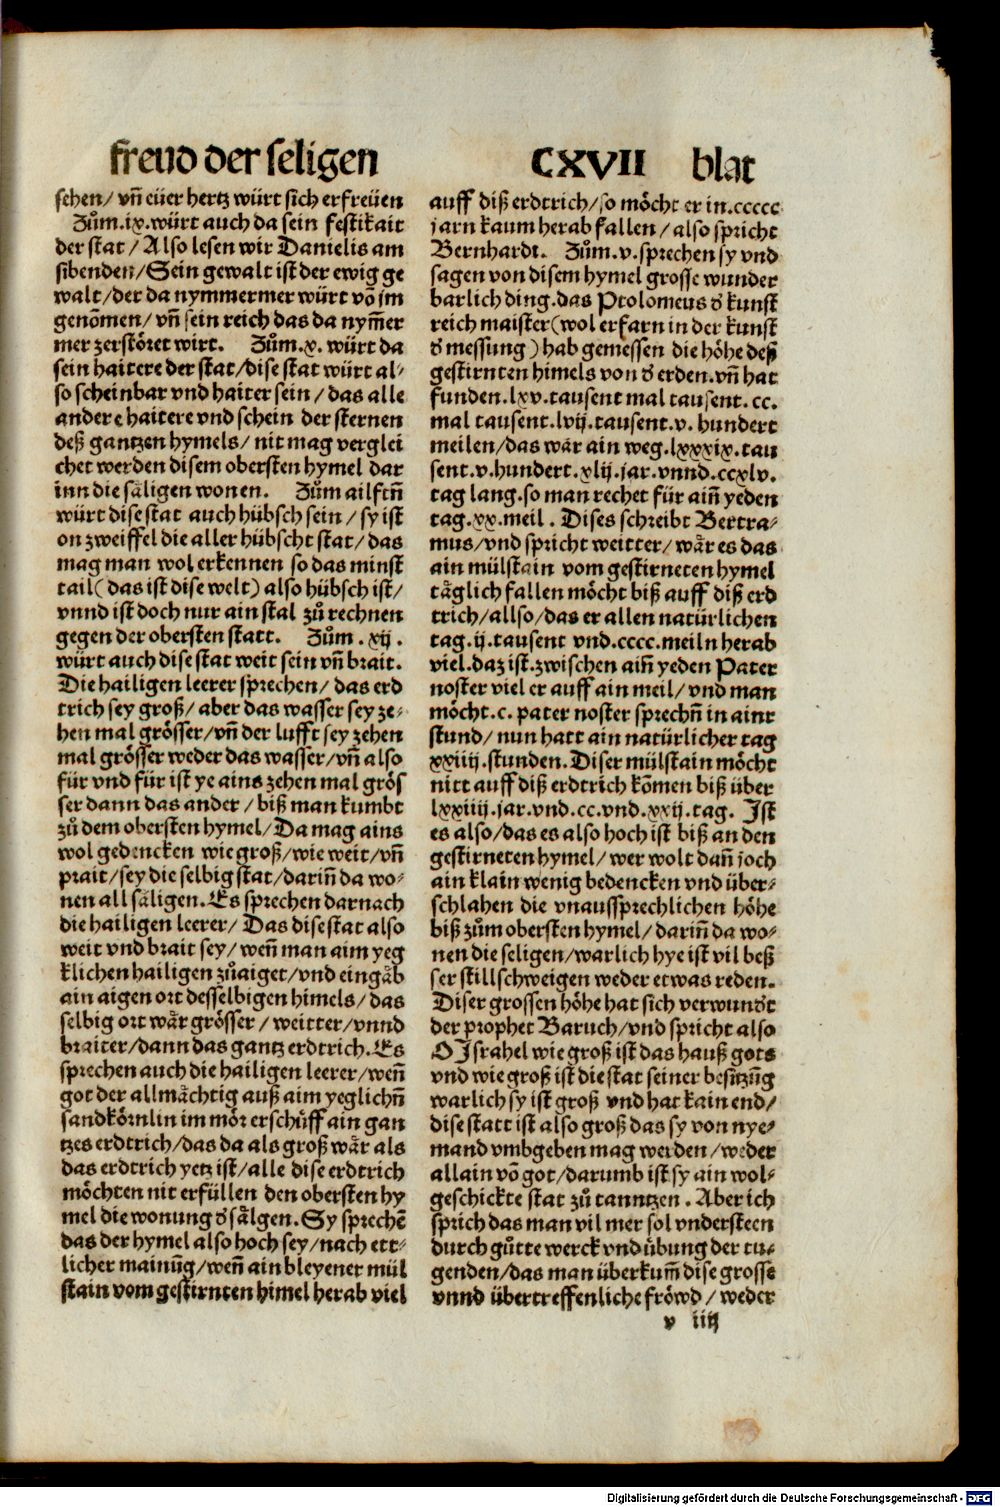 freud der seligen
CXVII blat
sehen/ vñ eüer hertz würt sich erfreüen
Zům.ix.würt auch da sein festikait
der stat/ Also lesen wir Danielis am
sibenden/Sein gewalt ist der ewig ge
walt/der da nymmermer würt võ jm
genõmen/ vñ sein reich das da nym̃er
mer zerstöret wirt. Zům.x. würt da
sein haitere der stat/dise stat würt al-
so scheinbar vnd haiter sein/das alle
andere haitere vnd schein der sternen
deß gantzen hymels/ nit mag verglei
chet werden disem obersten hymel dar
inn die säligen wonen. Zům ailftñ
würt dise stat auch hübsch sein/sy ist
on zweiffel die aller hübscht stat/das
mag man wol erkennen so das minst
tail(das ist dise welt) also hübsch ist/
vnnd ist doch nur ain stal zů rechnen
gegen der obersten statt. Zům .xij.
würt auch dise stat weit sein vñ brait.
Die hailigen leerer sprechen/ das erd
trich sey groß/ aber das wasser sey ze-
hen mal grösser/vñ der lufft sey zehen
mal grösser weder das wasser/vñ also
für vnd für ist ye ains zehen mal grös
ser dann das ander/ biß man kumbt
zů dem obersten hymel/Da mag ains
wol gedencken wie groß/wie weit/vñ
prait/sey die selbig stat/darin̄ da wo-
nen all säligen.Es sprechen darnach
die hailigen leerer/ Das dise stat also
weit vnd brait sey/ weñ man aim yeg
klichen hailigen zůaiget/vnd eingäb
ain aigen ort desselbigen himels/das
selbig ort wär grösser/ weitter/vnnd
braiter/dann das gantz erdtrich.Es
sprechen auch die hailigen leerer/weñ
got der allmächtig auß aim yeglichñ
sandkörnlin im mör erschüff ain gan
tzes erdtrich/das da als groß wär als
das erdtrich yetz ist/alle dise erdtrich
möchten nit erfüllen den obersten hy
mel die wonung ď sälgen.Sy sprechẽ
das der hymel also hoch sey/nach ett-
licher mainũg/weñ ain bleyener mül
stain vom gestirnten himel herab viel
auff diß erdtrich/so möcht er in.ccccc
jarn kaum herab fallen/ also spricht
Bernhardt. Zům.v.sprechen sy vnd
sagen von disem hymel grosse wunder
barlich ding.das Ptolomeus ď kunst
reich maister(wol erfarn in der kunst
ď messung)hab gemessen die höhe deß
gestirnten himels von ď erden.vñ hat
funden.lxv.tausent mal tausent.cc.
mal tausent.lvij.tausent.v. hundert
meilen/das wär ain weg.lxxxix.tau
sent.v.hundert.xlij.jar.vnnd.ccxlv.
tag lang.so man rechet für aiñ yeden
tag.xx.meil. Dises schreibt Bertra-
mus/vnd spricht weitter/wär es das
ain mülstain vom gestirneten hymel
täglich fallen möcht biß auff diß erd
trich/allso/das er allen natürlichen
tag.ij.tausent vnd.cccc.meiln herab
viel.daz ist.zwischen aiñ yeden Pater
noster viel er auff ain meil/vnd man
möcht.c. pater noster sprechñ in ainr
stund/ nun hatt ain natürlicher tag
xxiiij.stunden.Diser mülstain möcht
nitt auff diß erdtrich kõmen biß über
lxxiiij.jar.vnd.cc.vnd.xxij.tag. Ist
es also/das es also hoch ist biß an den
gestirneten hymel/wer wolt dañ joch
ain klain wenig bedencken vnd über-
schlahen die vnaussprechlichen höhe
biß zům obersten hymel/darin̄ da wo-
nen die seligen/warlich hye ist vil beß
ser stillschweigen weder etwas reden.
Diser grossen höhe hat sich verwunďt
der prophet Baruch/vnd spricht also
O Israhel wie groß ist das hauß gots
vnd wie groß ist die stat seiner besitzũg
warlich sy ist groß vnd hat kain end/
dise statt ist also groß das sy von nye-
mand vmbgeben mag werden/weder
allain võ got/darumb ist sy ain wol-
geschickte stat zů tanntzen. Aber ich
sprich das man vil mer sol vndersteen
durch gůtte werck vnd übung der tu-
genden/das man überkum̃ dise grosse
vnnd übertreffenliche fröwd/weder
v iiij
Digitalisierung gefördert durch die Deutsche Forschungsgemeinschaft - DFG